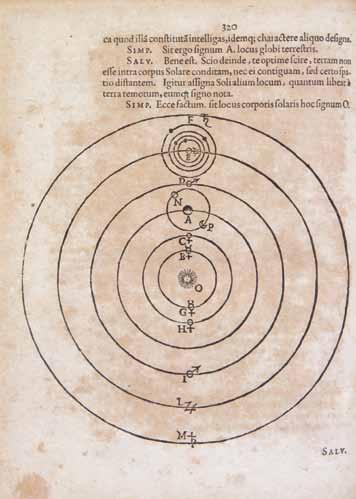 320
ca quod illā constitutā intelligas, idemq; charactere aliquo designa.
SIMP. Sit ergo signum A. locus globi terrestris.
SALV. Bene est. Scio deinde, te optime scire, terram non
esse intra corpus Solare conditam, nec ei contiguam, sed certo spa-
tio distantem. Igitur assigna Soli alium locum, quantum libet à
terra remotum, eumq; signo nota.
SIMP. Ecce factum. sit locus corporis solaris hoc signum O.
F ♄
E
D ♂
N
A
P
C ♀
B ☿
O
G ☿
H ♀
I ♂
L ♃
M ♄
SALV.